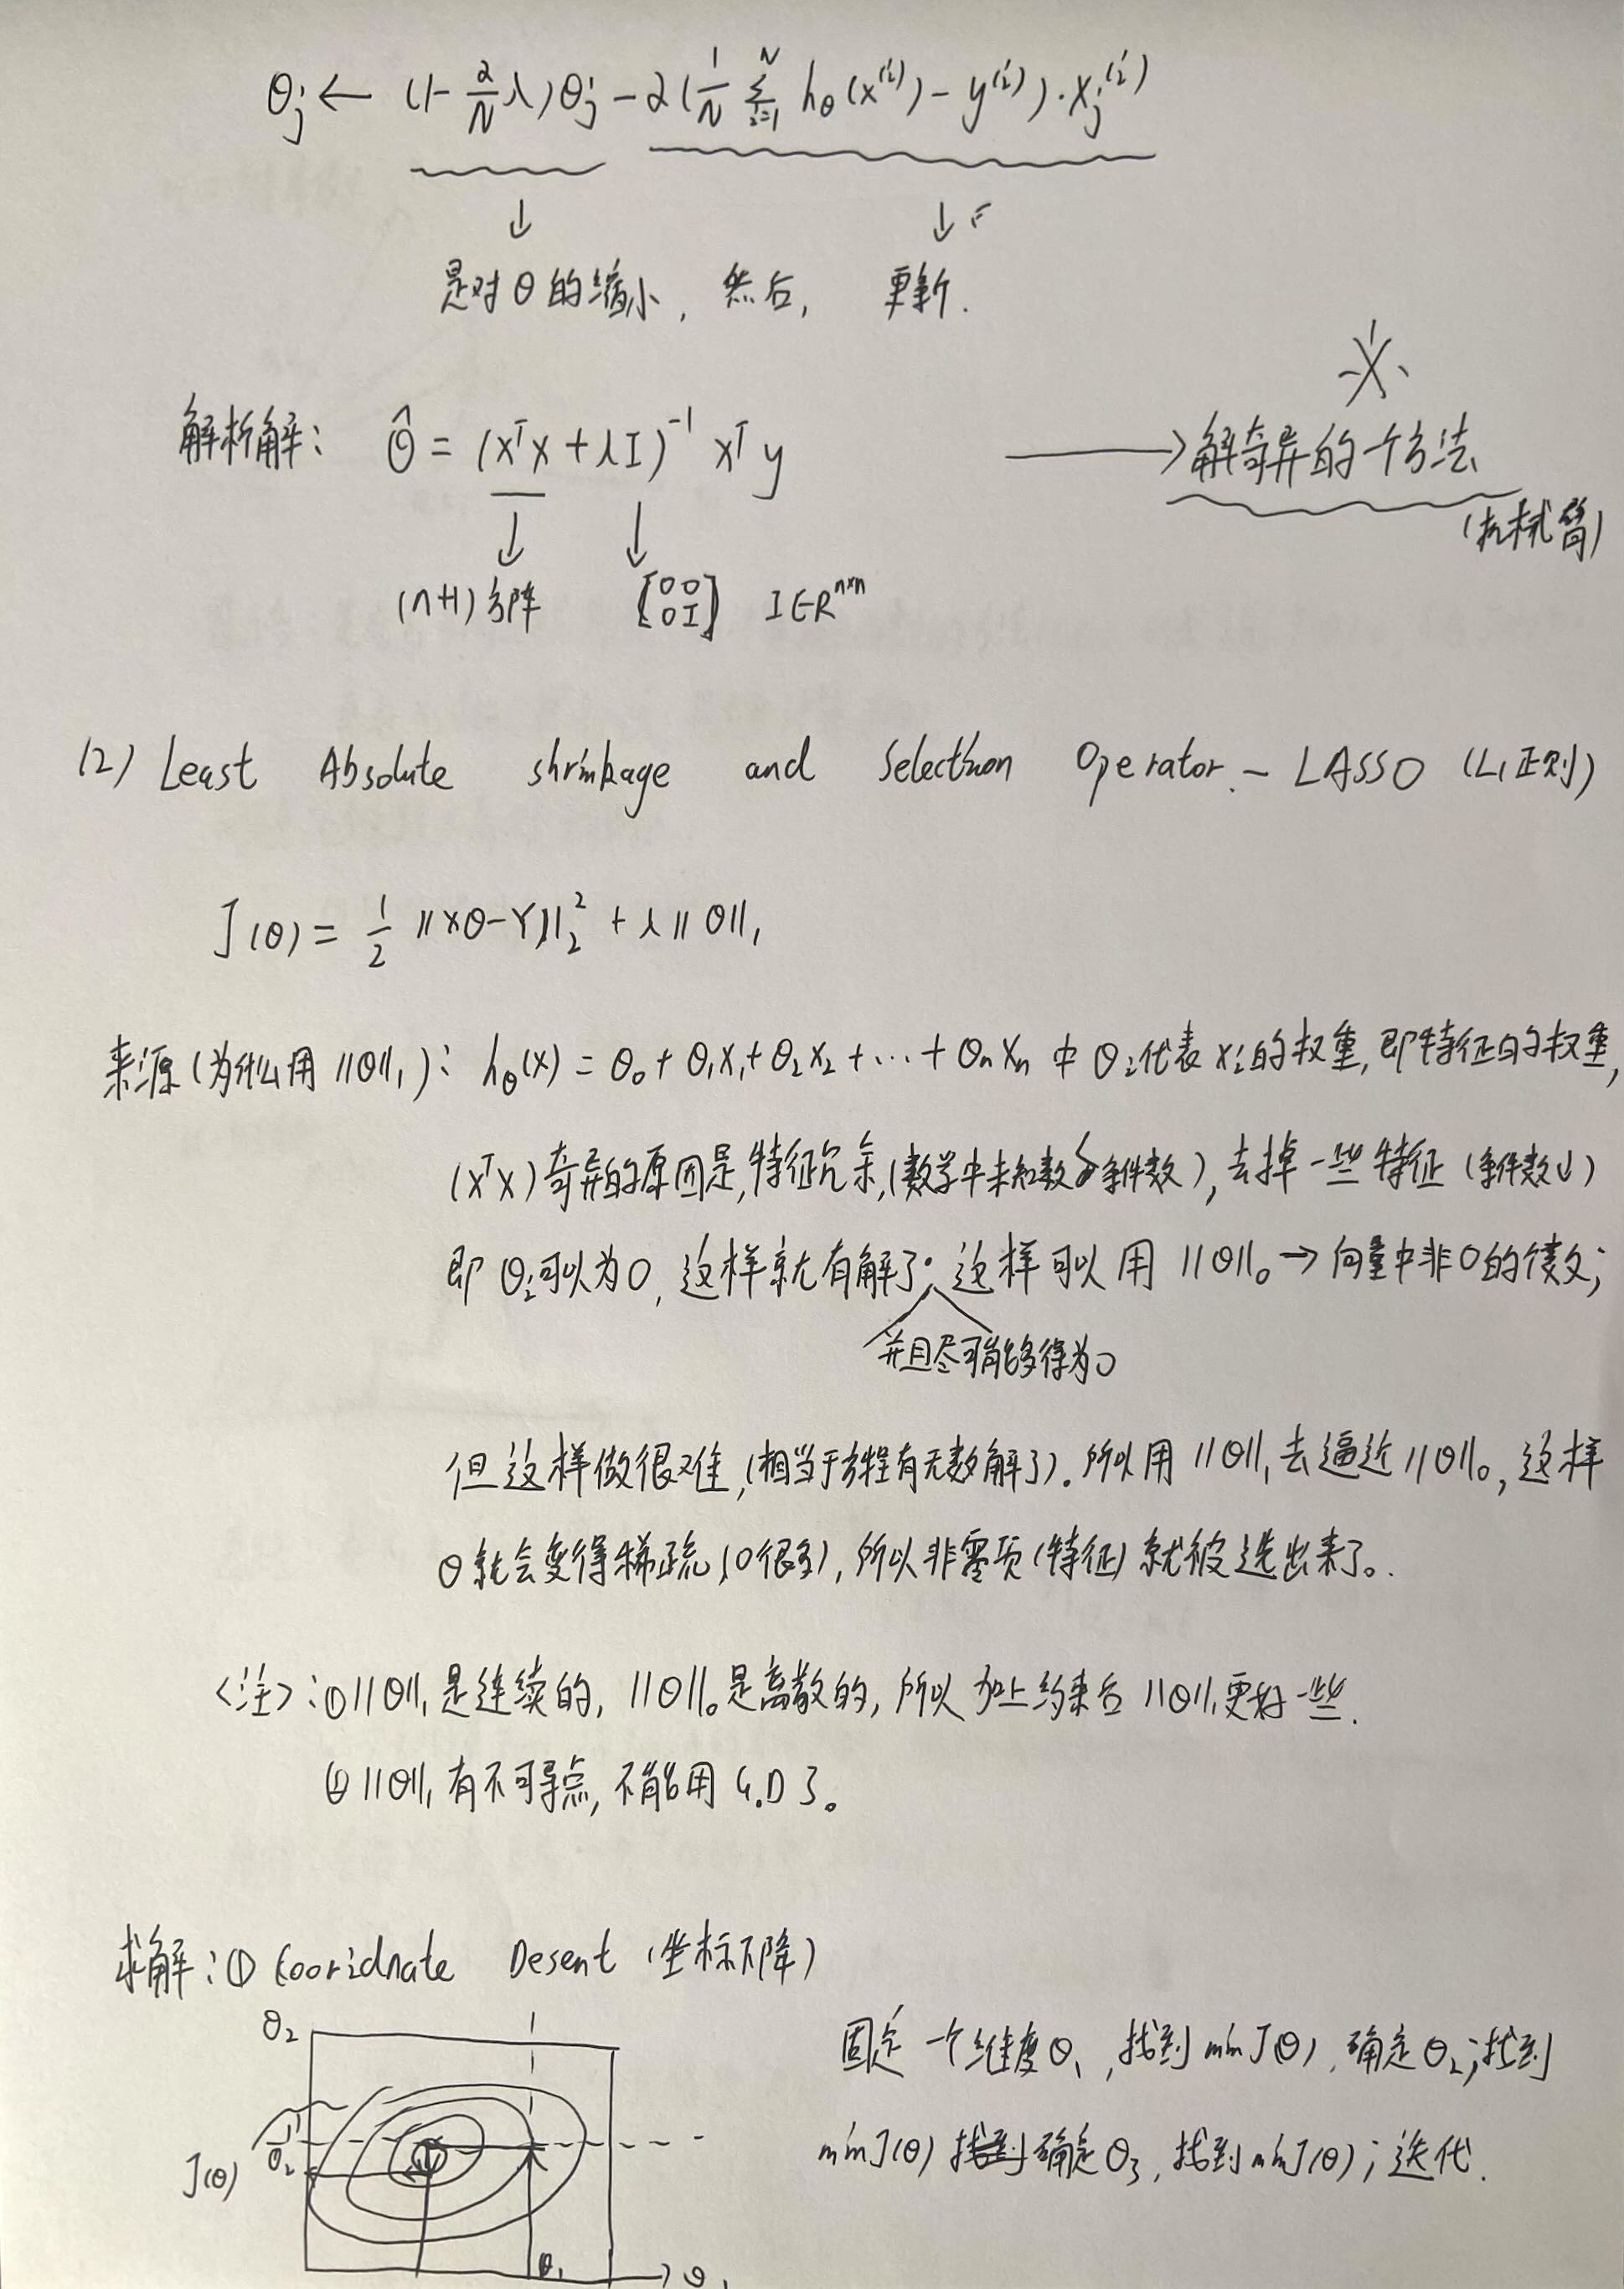 θj ← (1 - α/N λ)θj - α(1/N Σ_{i=1}^{N} hθ(x⁽ⁱ⁾) - y⁽ⁱ⁾)·xj⁽ⁱ⁾
↓ ↓
是对θ的缩小, 然后, 更新.
解析解: θ̂ = (xᵀx + λI)⁻¹ xᵀy → 解奇异的一个方法
(机械臂)
↓ ↓
(n+1)方阵 [0 0 0 I] I∈Rⁿˣⁿ
(2) Least Absolute shrinkage and Selection Operator. - LASSO (L1正则)
J(θ) = 1/2 ||Xθ-Y||₂² + λ||θ||₁
来源(为什么用||θ||₁): hθ(x) = θ₀ + θ₁x₁ + θ₂x₂ + ... + θₙxₙ 中 θi代表xi的权重, 即特征的权重,
(xᵀx)奇异的原因是, 特征冗余, (数学中未知数 条件数), 去掉一些特征 (条件数↓)
即θi可以为0, 这样就有解了; 这样可以用||θ||₀ → 向量中非0的个数;
并且尽可能多得为0
但这样做很难, (相当于方程有无数解了). 所以用||θ||₁去逼近||θ||₀, 这样
θ就会变得稀疏(0很多), 所以非零项(特征)就被选出来了。
<注>: ①||θ||₁是连续的, ||θ||₀是离散的, 所以加上约束后||θ||₁更好一些.
②||θ||₁有不可导点, 不能用G.D了。
求解: ① Cooridnate Desent (坐标下降)
θ₂
固定一个维度θ₁, 找到minJ(θ), 确定θ₂; 找到
minJ(θ) 确定θ₃, 找到minJ(θ); 迭代.
J(θ) θ₂
θ₁ θ₁